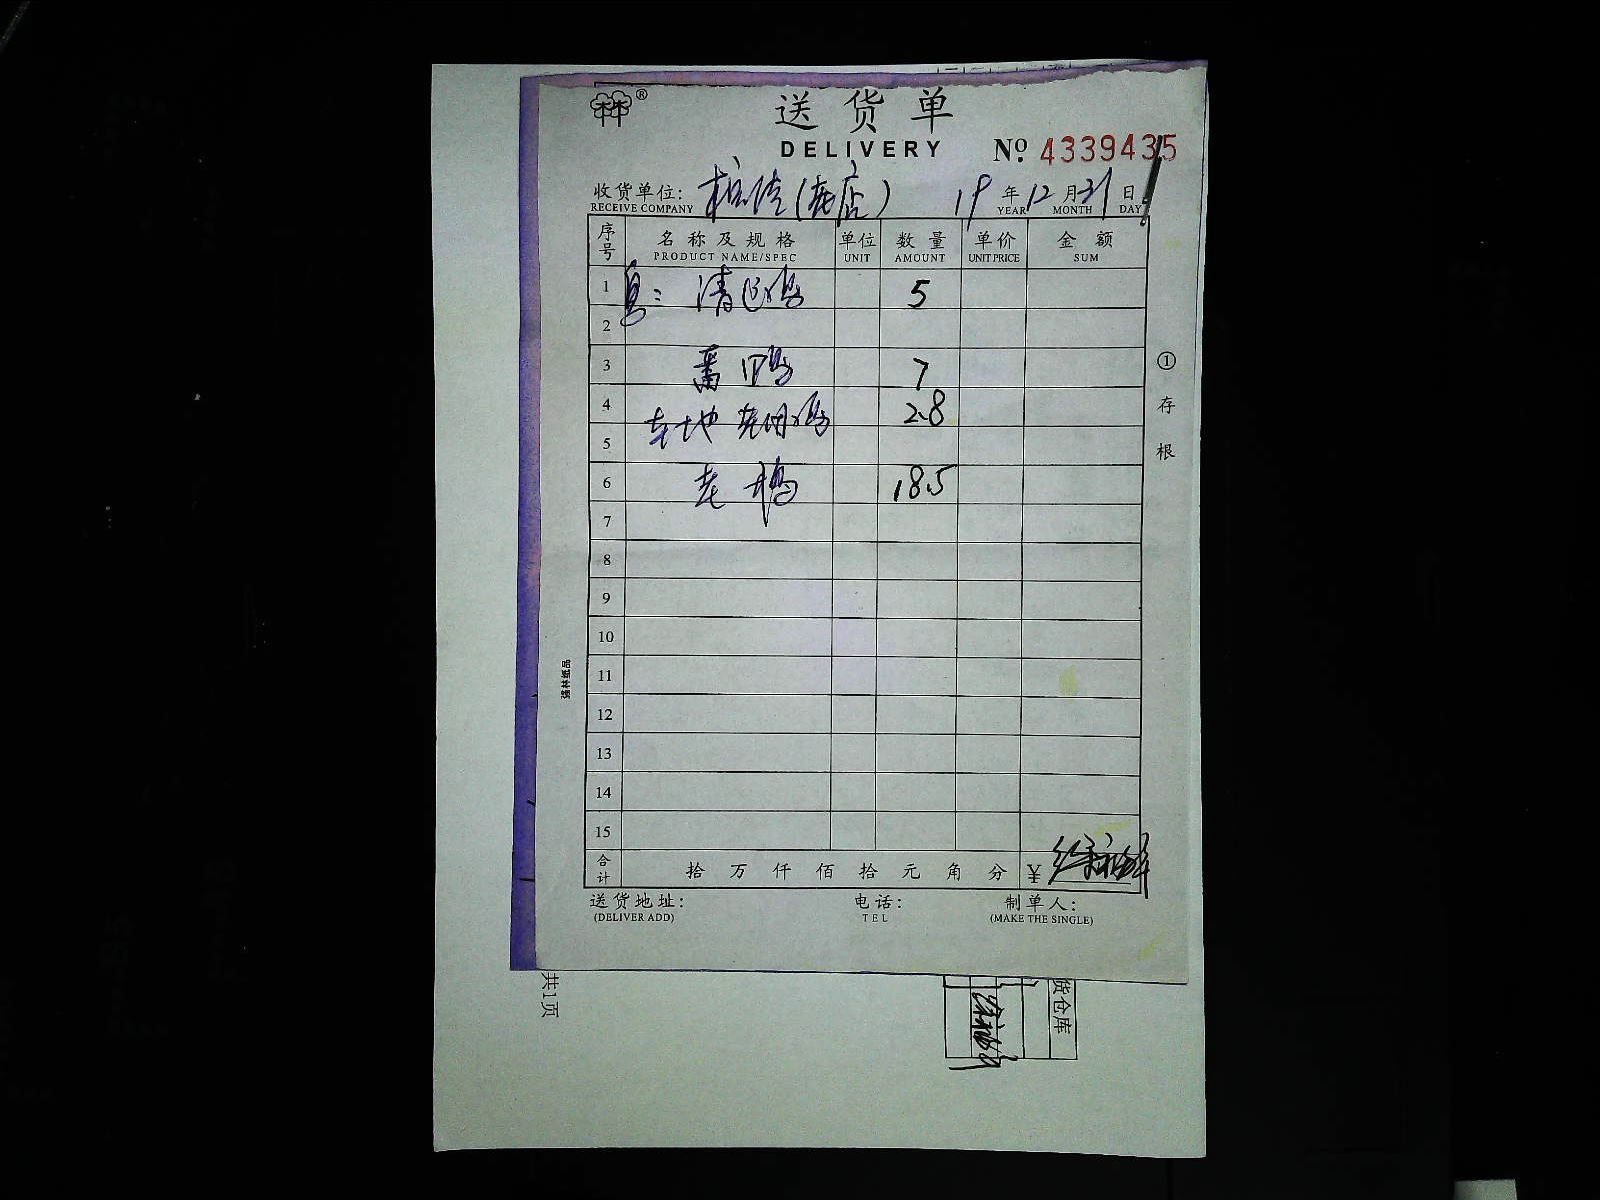 林林®
送货单
DELIVERY
№ 4339435
收货单位: (老店) 19 年 12 月 31 日
RECEIVE COMPANY YEAR MONTH DAY
序号 名称及规格 单位 数量 单价 金额
PRODUCT NAME/SPEC UNIT AMOUNT UNIT PRICE SUM
1 清远鸡 5
2
3 番鸭 7
4 本地老母鸡 2.8
5
6 老鹅 18.5
7
8
9
10
11
12
13
14
15
合计 拾万仟佰拾元角分 ¥
送货地址: 电话: 制单人:
(DELIVER ADD) TEL (MAKE THE SINGLE)
①存根
共1页
货仓库